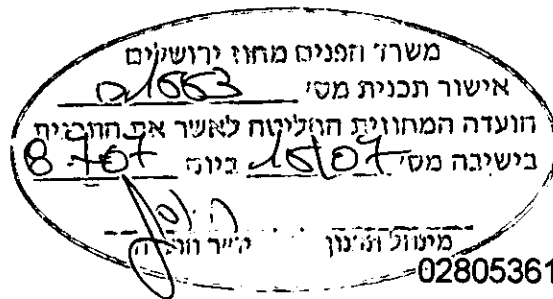 משרד הפנים מחוז ירושלים
אישור תכנית מס' 1663
הועדה המחוזית החליטה לאשר את התכנית
בישיבה מס' 16/07 ביום 8.7.07
מינהל תכנון יו"ר הועדה
02805361